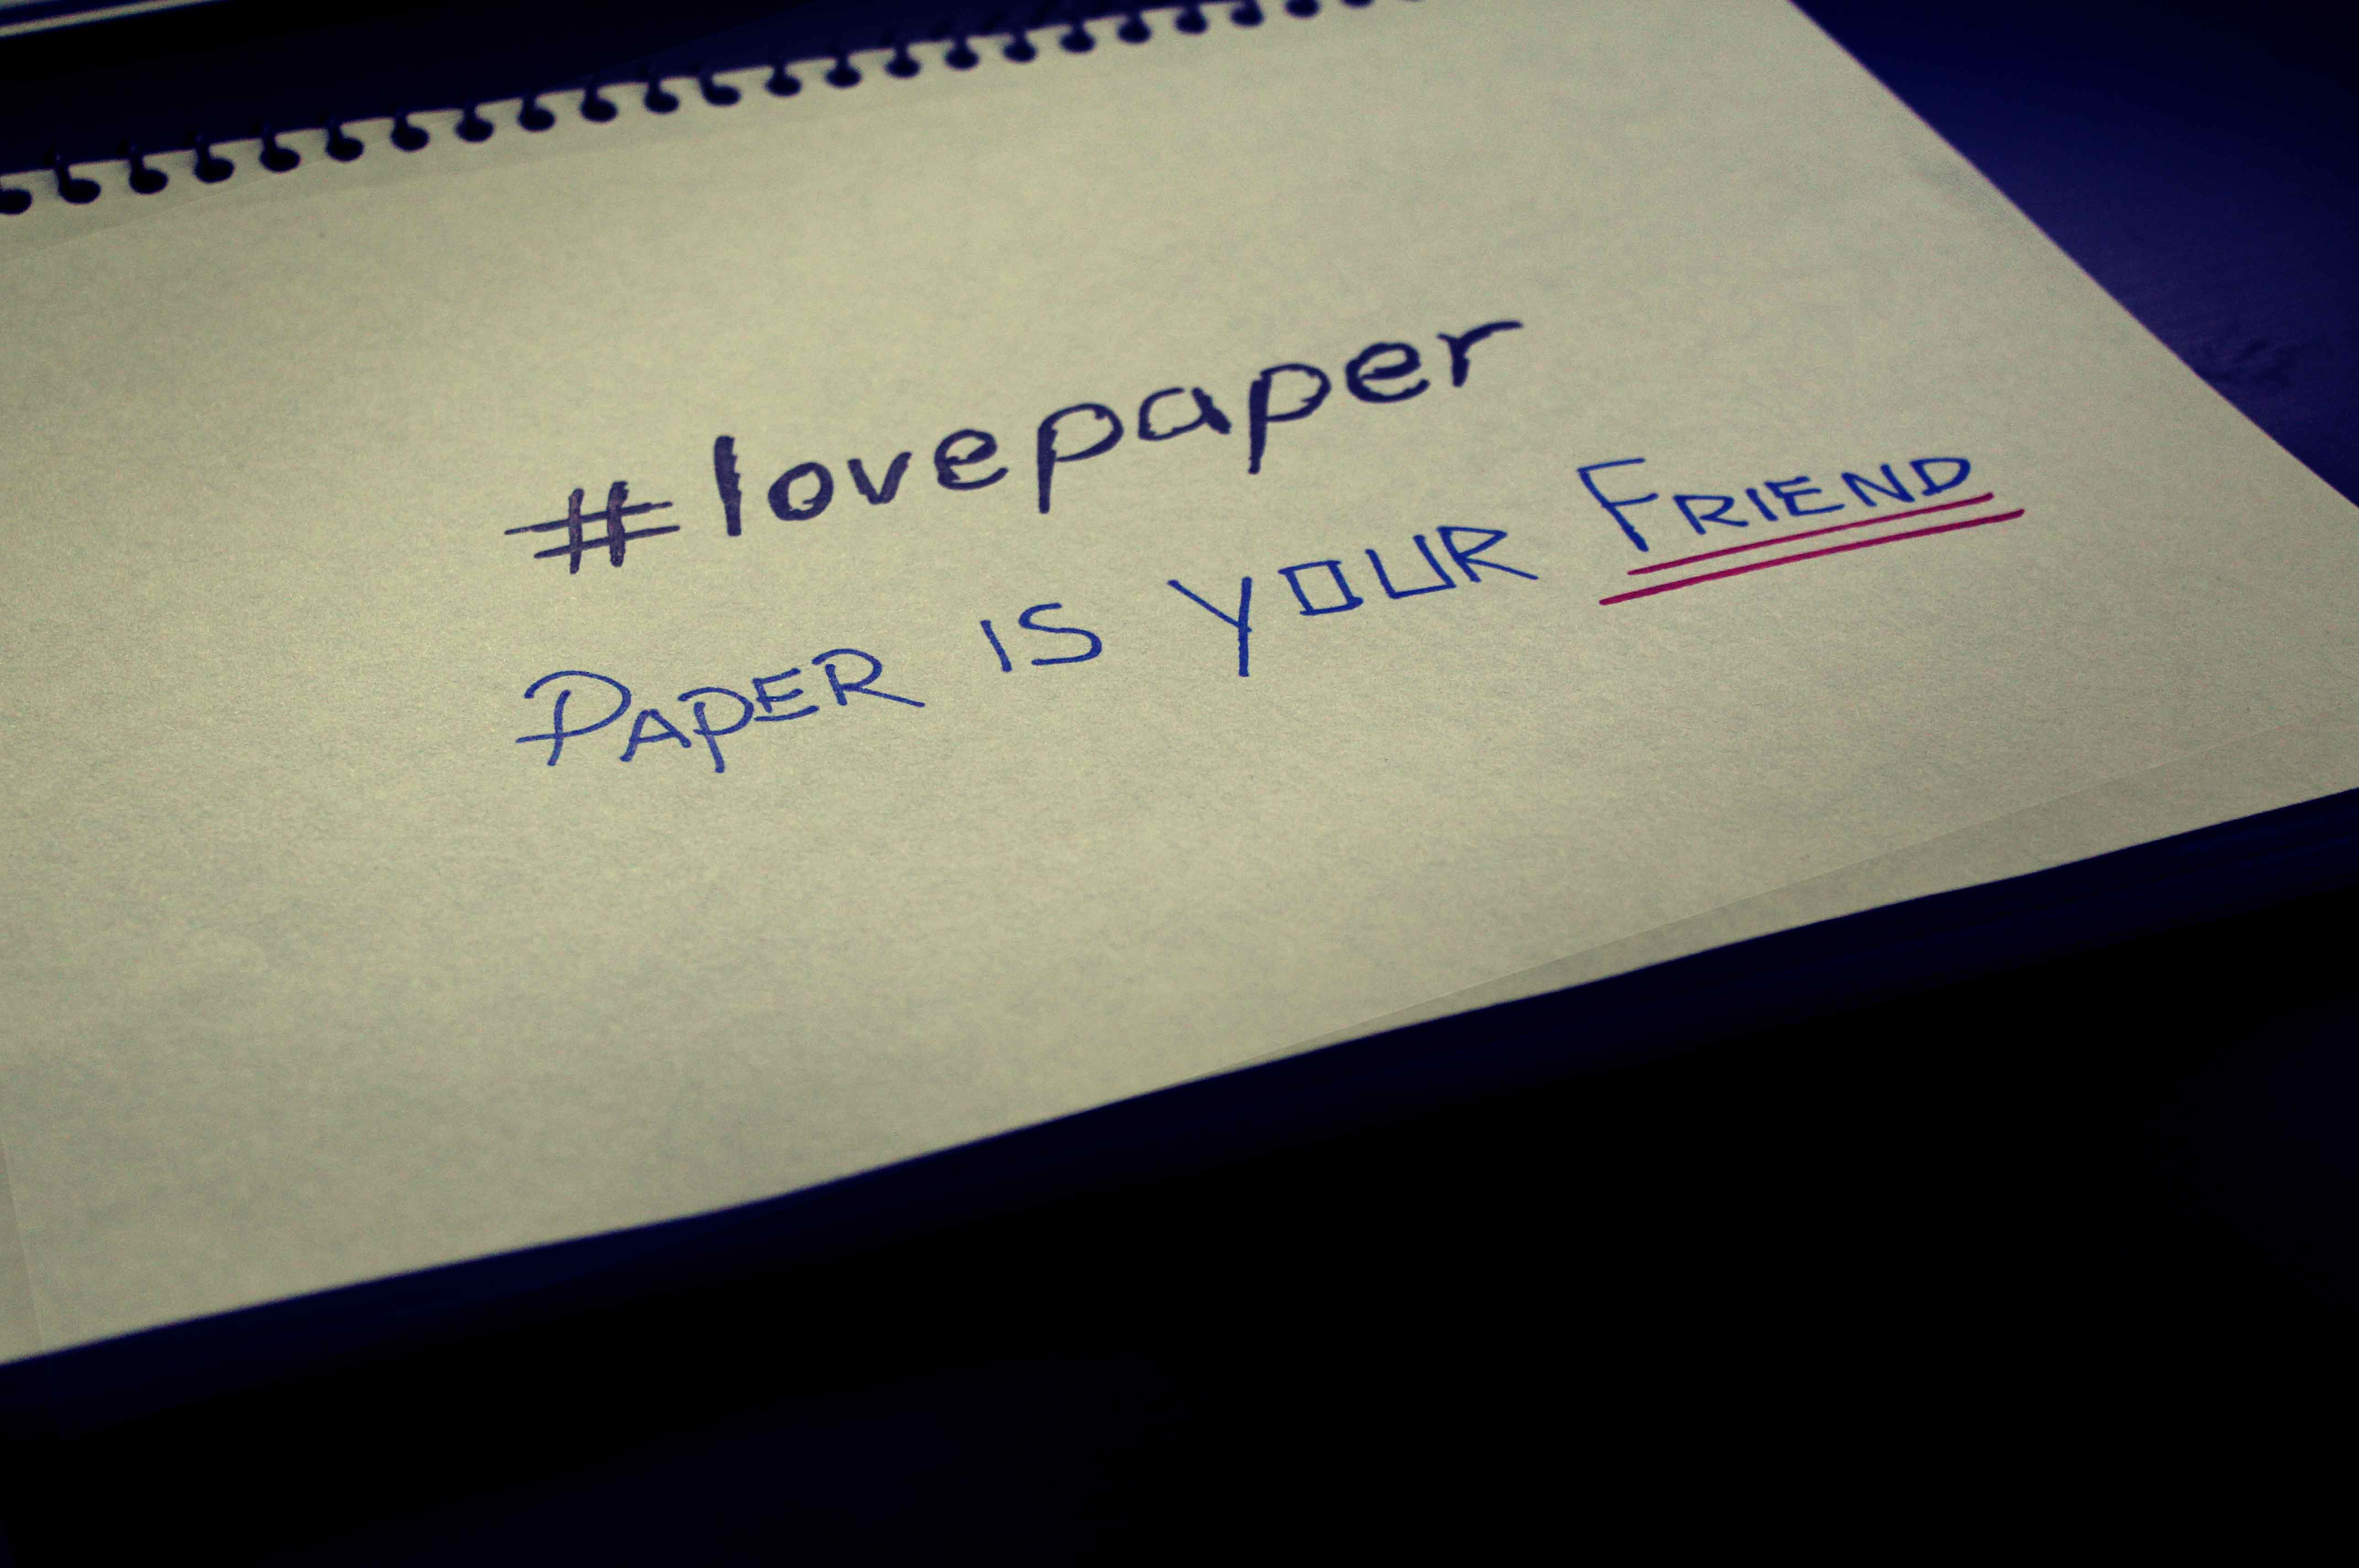 #lovepaper
PAPER IS YOUR FRIEND